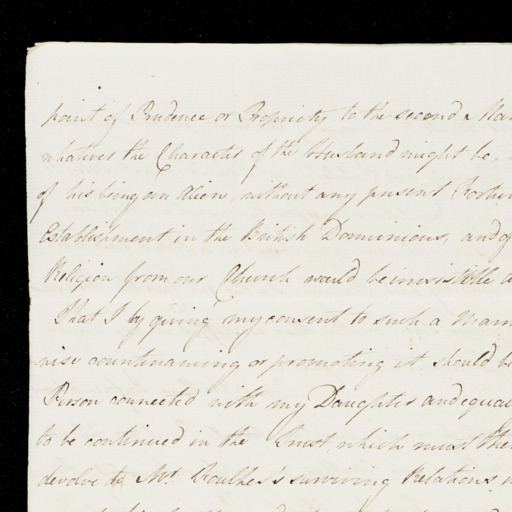 point of Prudence or Propriety to the second a Mar
whatever the Character of the Husband might be,
of his being an Alien, without any present Fortun
Establishment in the British Dominions, and of
Religion from our Church would be invisible
That I by giving my consent to such a Marr
wise countenancing or promoting it should be
Person connected with my Daughters and equal
to be continued in the Trust, which must then
devolve to Mrs
surviving Relations